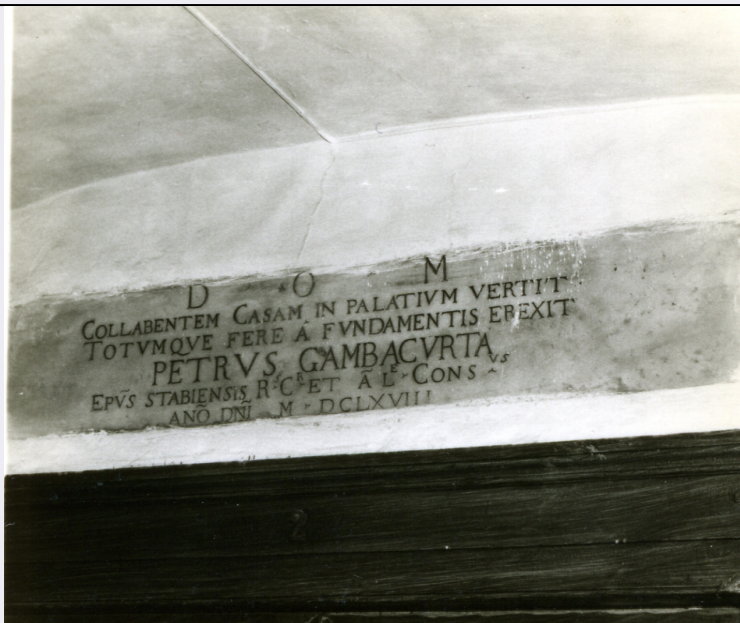 D O M
COLLABENTEM CASAM IN PALATIVM VERTIT
TOTVMQVE FERE A FVNDAMENTIS EREXIT
PETRVS GAMBACVRTA
EPVS STABIENSIS ET CONSUS
ANÕ DÑI M DCLXVIII